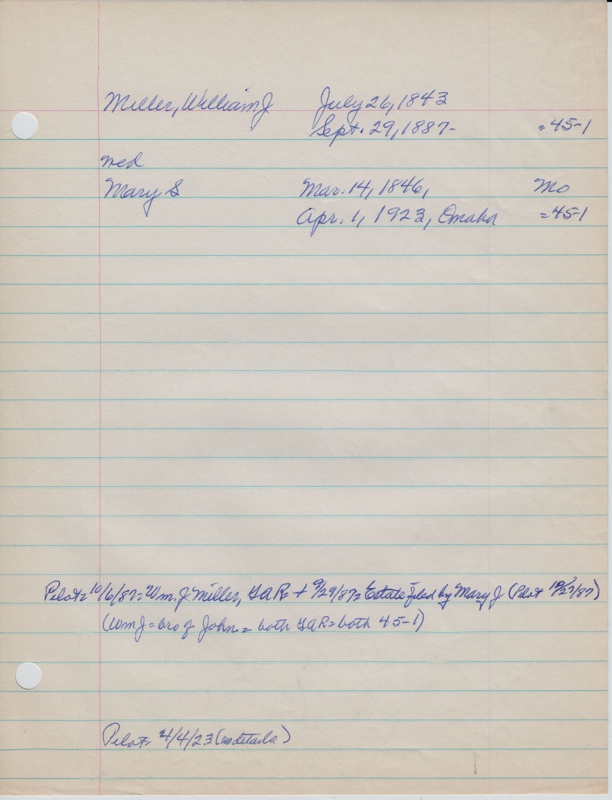 Miller, William J July 26, 1843
Sept. 29, 1887- =45-1
wed
Mary S Mar. 14, 1846, Mo
Apr. 1, 1923, Omaha =45-1
Pilot= 10/6/87= Wm. J Miller, GAR= + 9/29/87= Estate filed by Mary J (Pilot 10/27/87)
(Wm J = bro of John = both GAR= both 45-1)
Pilot= 4/4/23 (no details)